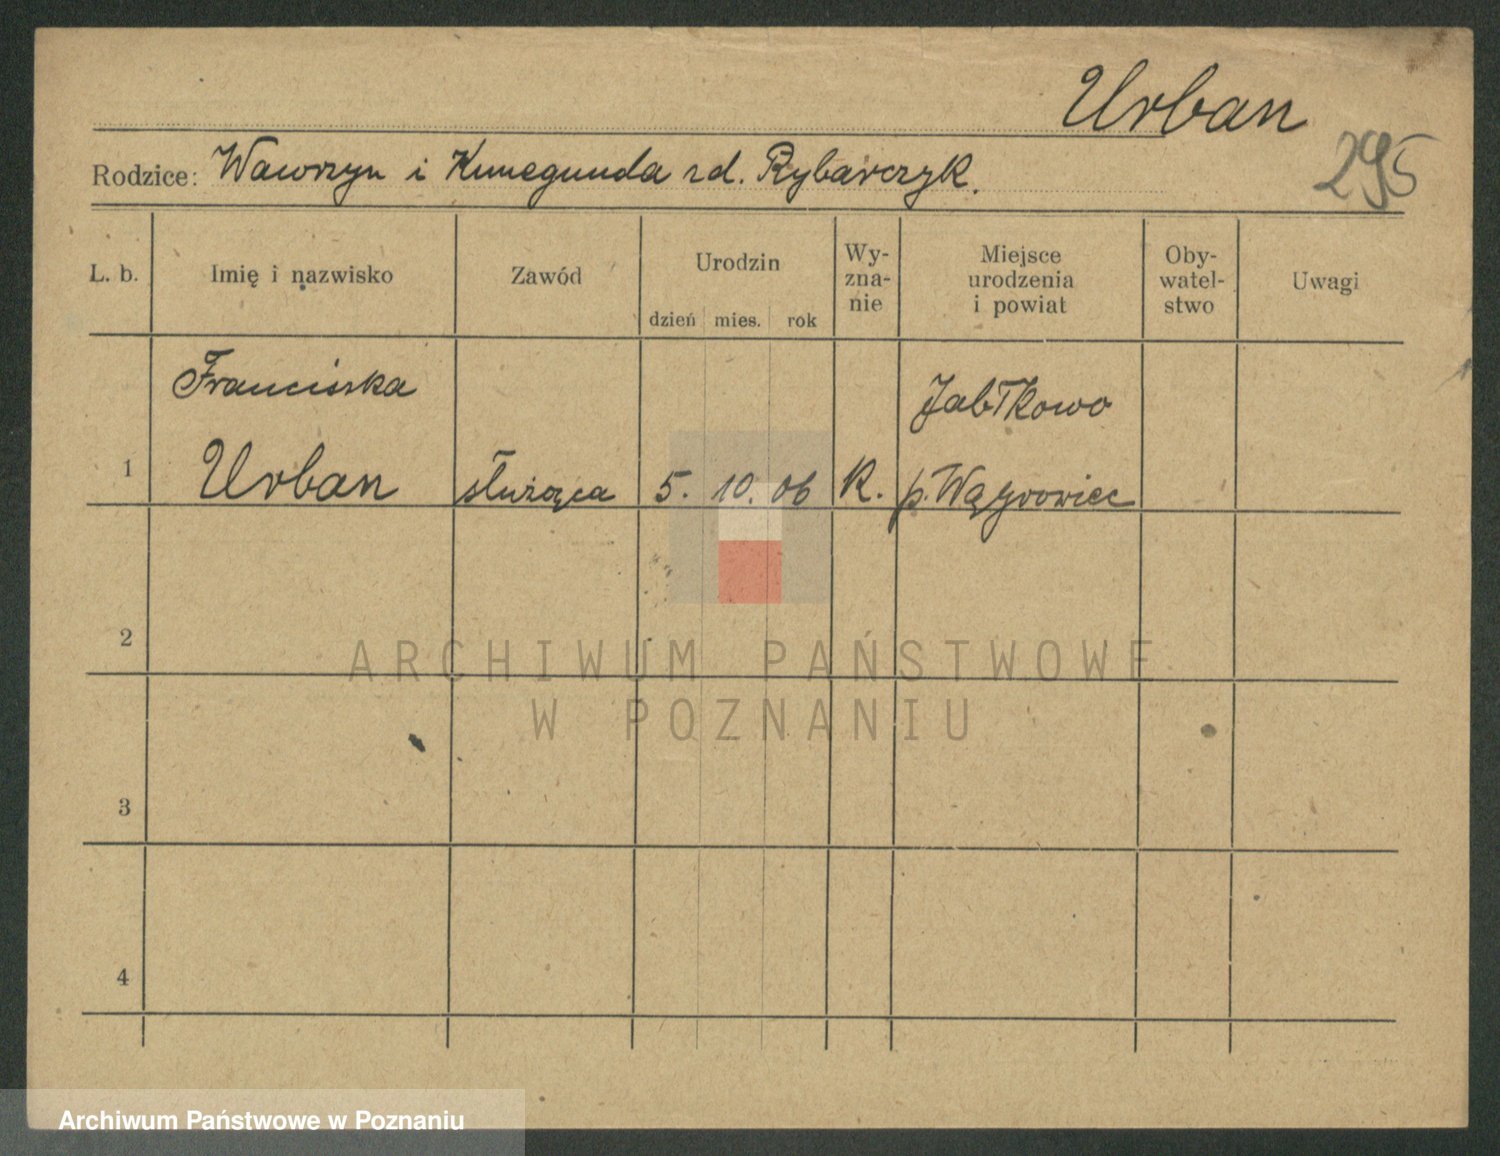 Urban
295
Rodzice: Wawrzyn i Kunegunda zd. Rybarczyk.
L. b.
Imię i nazwisko
Zawód
Urodzin
dzień mies. rok
Wy-
zna-
nie
Miejsce
urodzenia
i powiat
Oby-
watel-
stwo
Uwagi
1
Franciszka
Urban
służąca
5. 10. 06
K.
Jabłkowo
p. Wągrowiec
2
ARCHIWUM PAŃSTWOWE
W POZNANIU
3
4
Archiwum Państwowe w Poznaniu